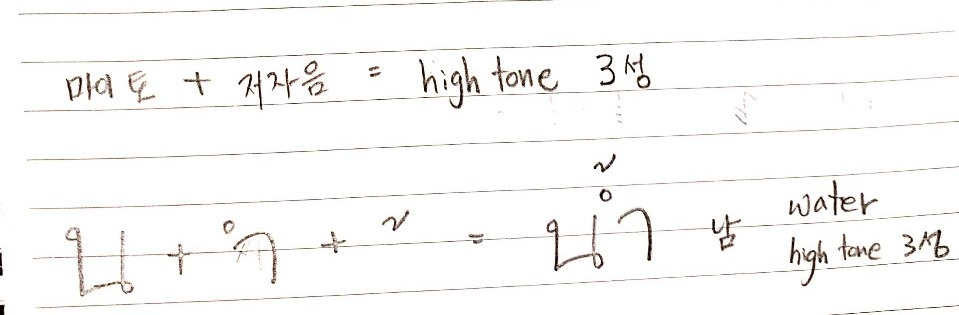 마이 토 + 저자음 = high tone 3성
น + ำ + ้ = น้ำ 남 water
high tone 3성